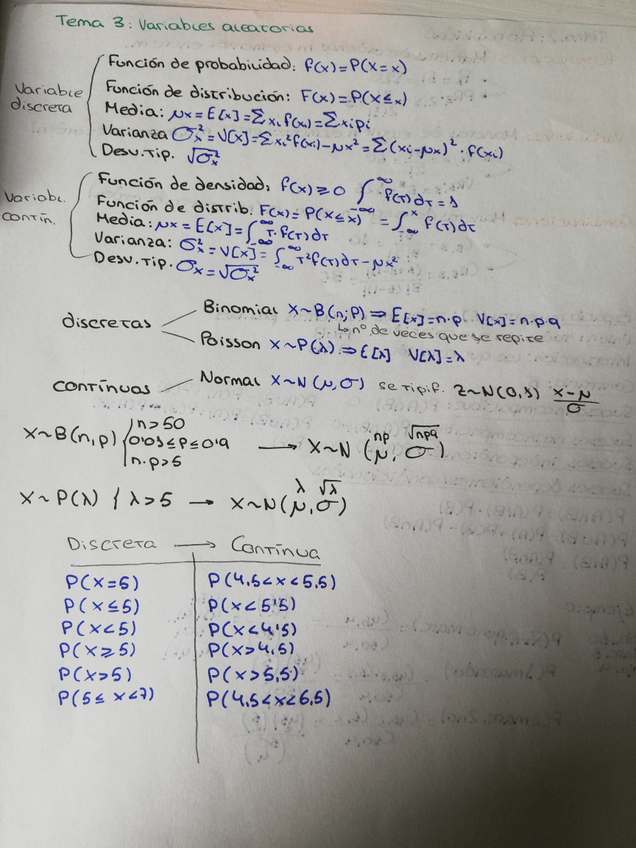 Tema 3: Variables aleatorias
Variable discreta
Función de probabilidad: f(x)=P(X=x)
Función de distribución: F(x)=P(X≤x)
Media: μx=E[x]=Σxi f(xi)=Σxipi
Varianza σx²=V[x]=Σxi²f(xi)-μx²=Σ(xi-μx)²·f(xi)
Desv.tip. √σx²
Variabl. contín.
Función de densidad: f(x)≥0 ∫_-∞^∞ f(τ)dτ=1
Función de distrib. F(x)=P(X≤x)=∫_-∞^x f(τ)dτ
Media: μx=E[x]=∫_-∞^∞ τ·f(τ)dτ
Varianza: σx²=V[x]=∫_-∞^∞ τ²f(τ)dτ-μx²
Desv.tip. σx=√σx²
discretas
Binomial X~B(n;p)⇒E[x]=n·p V[x]=n·p·q
↳nº de veces que se repite
Poisson X~P(λ)⇒E[λ] V[λ]=λ
contínuas
Normal X~N(μ,σ) se tipif. Z~N(0,1) x-μ/σ
X~B(n,p) { n>50
0'01≤p≤0'9
n·p>5
→ X~N(μ,σ) np √npq
X~P(λ) { λ>5 → X~N(μ,σ) λ √λ
Discreta → Contínua
P(X=5) P(4.5<x<5.5)
P(X≤5) P(x<5'5)
P(X<5) P(x<4'5)
P(x≥5) P(x>4.5)
P(x>5) P(x>5.5)
P(5≤x<7) P(4.5<x<6.5)